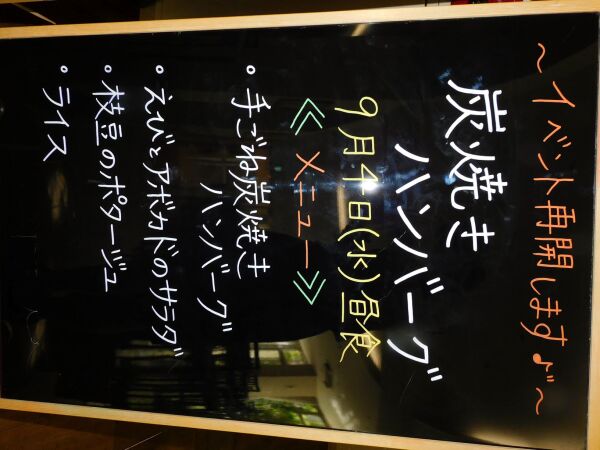 ～イベント再開します♪～
炭焼き
ハンバーグ
9月4日(水)昼食
≪メニュー≫
・手ごね炭焼き
ハンバーグ
・えびとアボカドのサラダ
・枝豆のポタージュ
・ライス